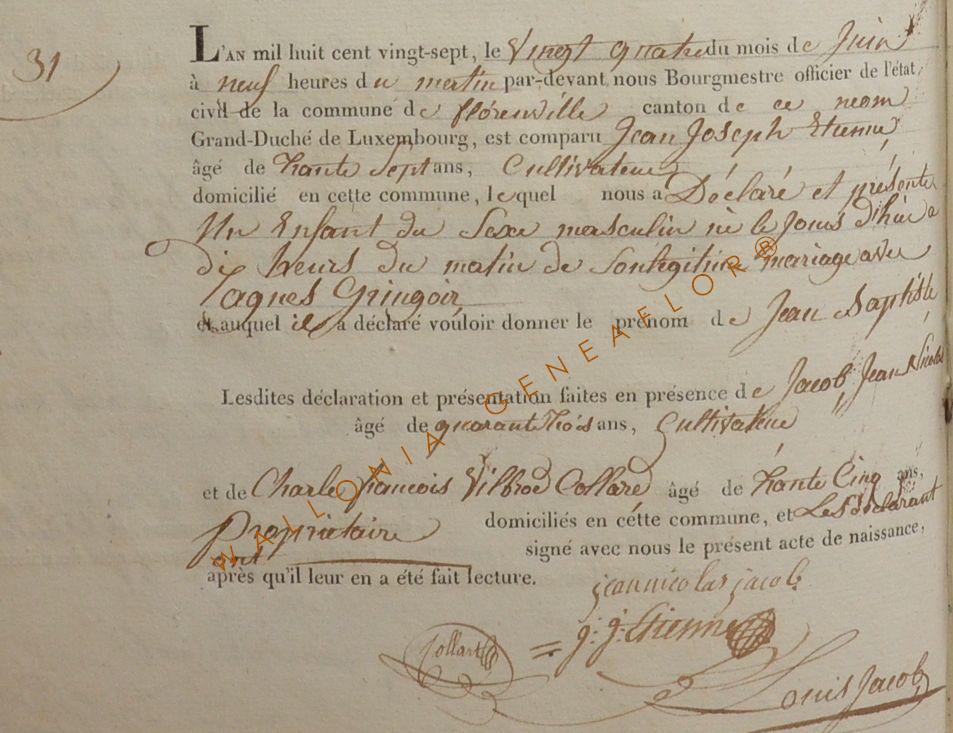 31
L'AN mil huit cent vingt-sept, le Vingt quatre du mois de Juin
à neuf heures du matin par-devant nous Bourgmestre officier de l'état
civil de la commune de florenville canton de ce nom
Grand-Duché de Luxembourg, est comparu Jean Joseph Etienne
âgé de trante Sept ans, Cultivateur
domicilié en cette commune, lequel nous a Déclaré et présenté
Un Enfant du Sexe masculin né le Jours d'hier a
dix heurs du matin de Son légitime mariage avec
agnes Gringoir
et auquel il a déclaré vouloir donner le prénom de Jean Baptiste
Lesdites déclaration et présentation faites en présence de Jacob Jean Nicolas
âgé de quarante trois ans, Cultivateur
et de Charle francois Vilbrod Collard âgé de trante Cinq ans,
Propriétaire domiciliés en cette commune, et Les déclarant
ont signé avec nous le présent acte de naissance,
après qu'il leur en a été fait lecture.
jean nicolas jacob
j: j: Etienne
Collart
Louis Jacob
WALLONIA GENEAFLOR®